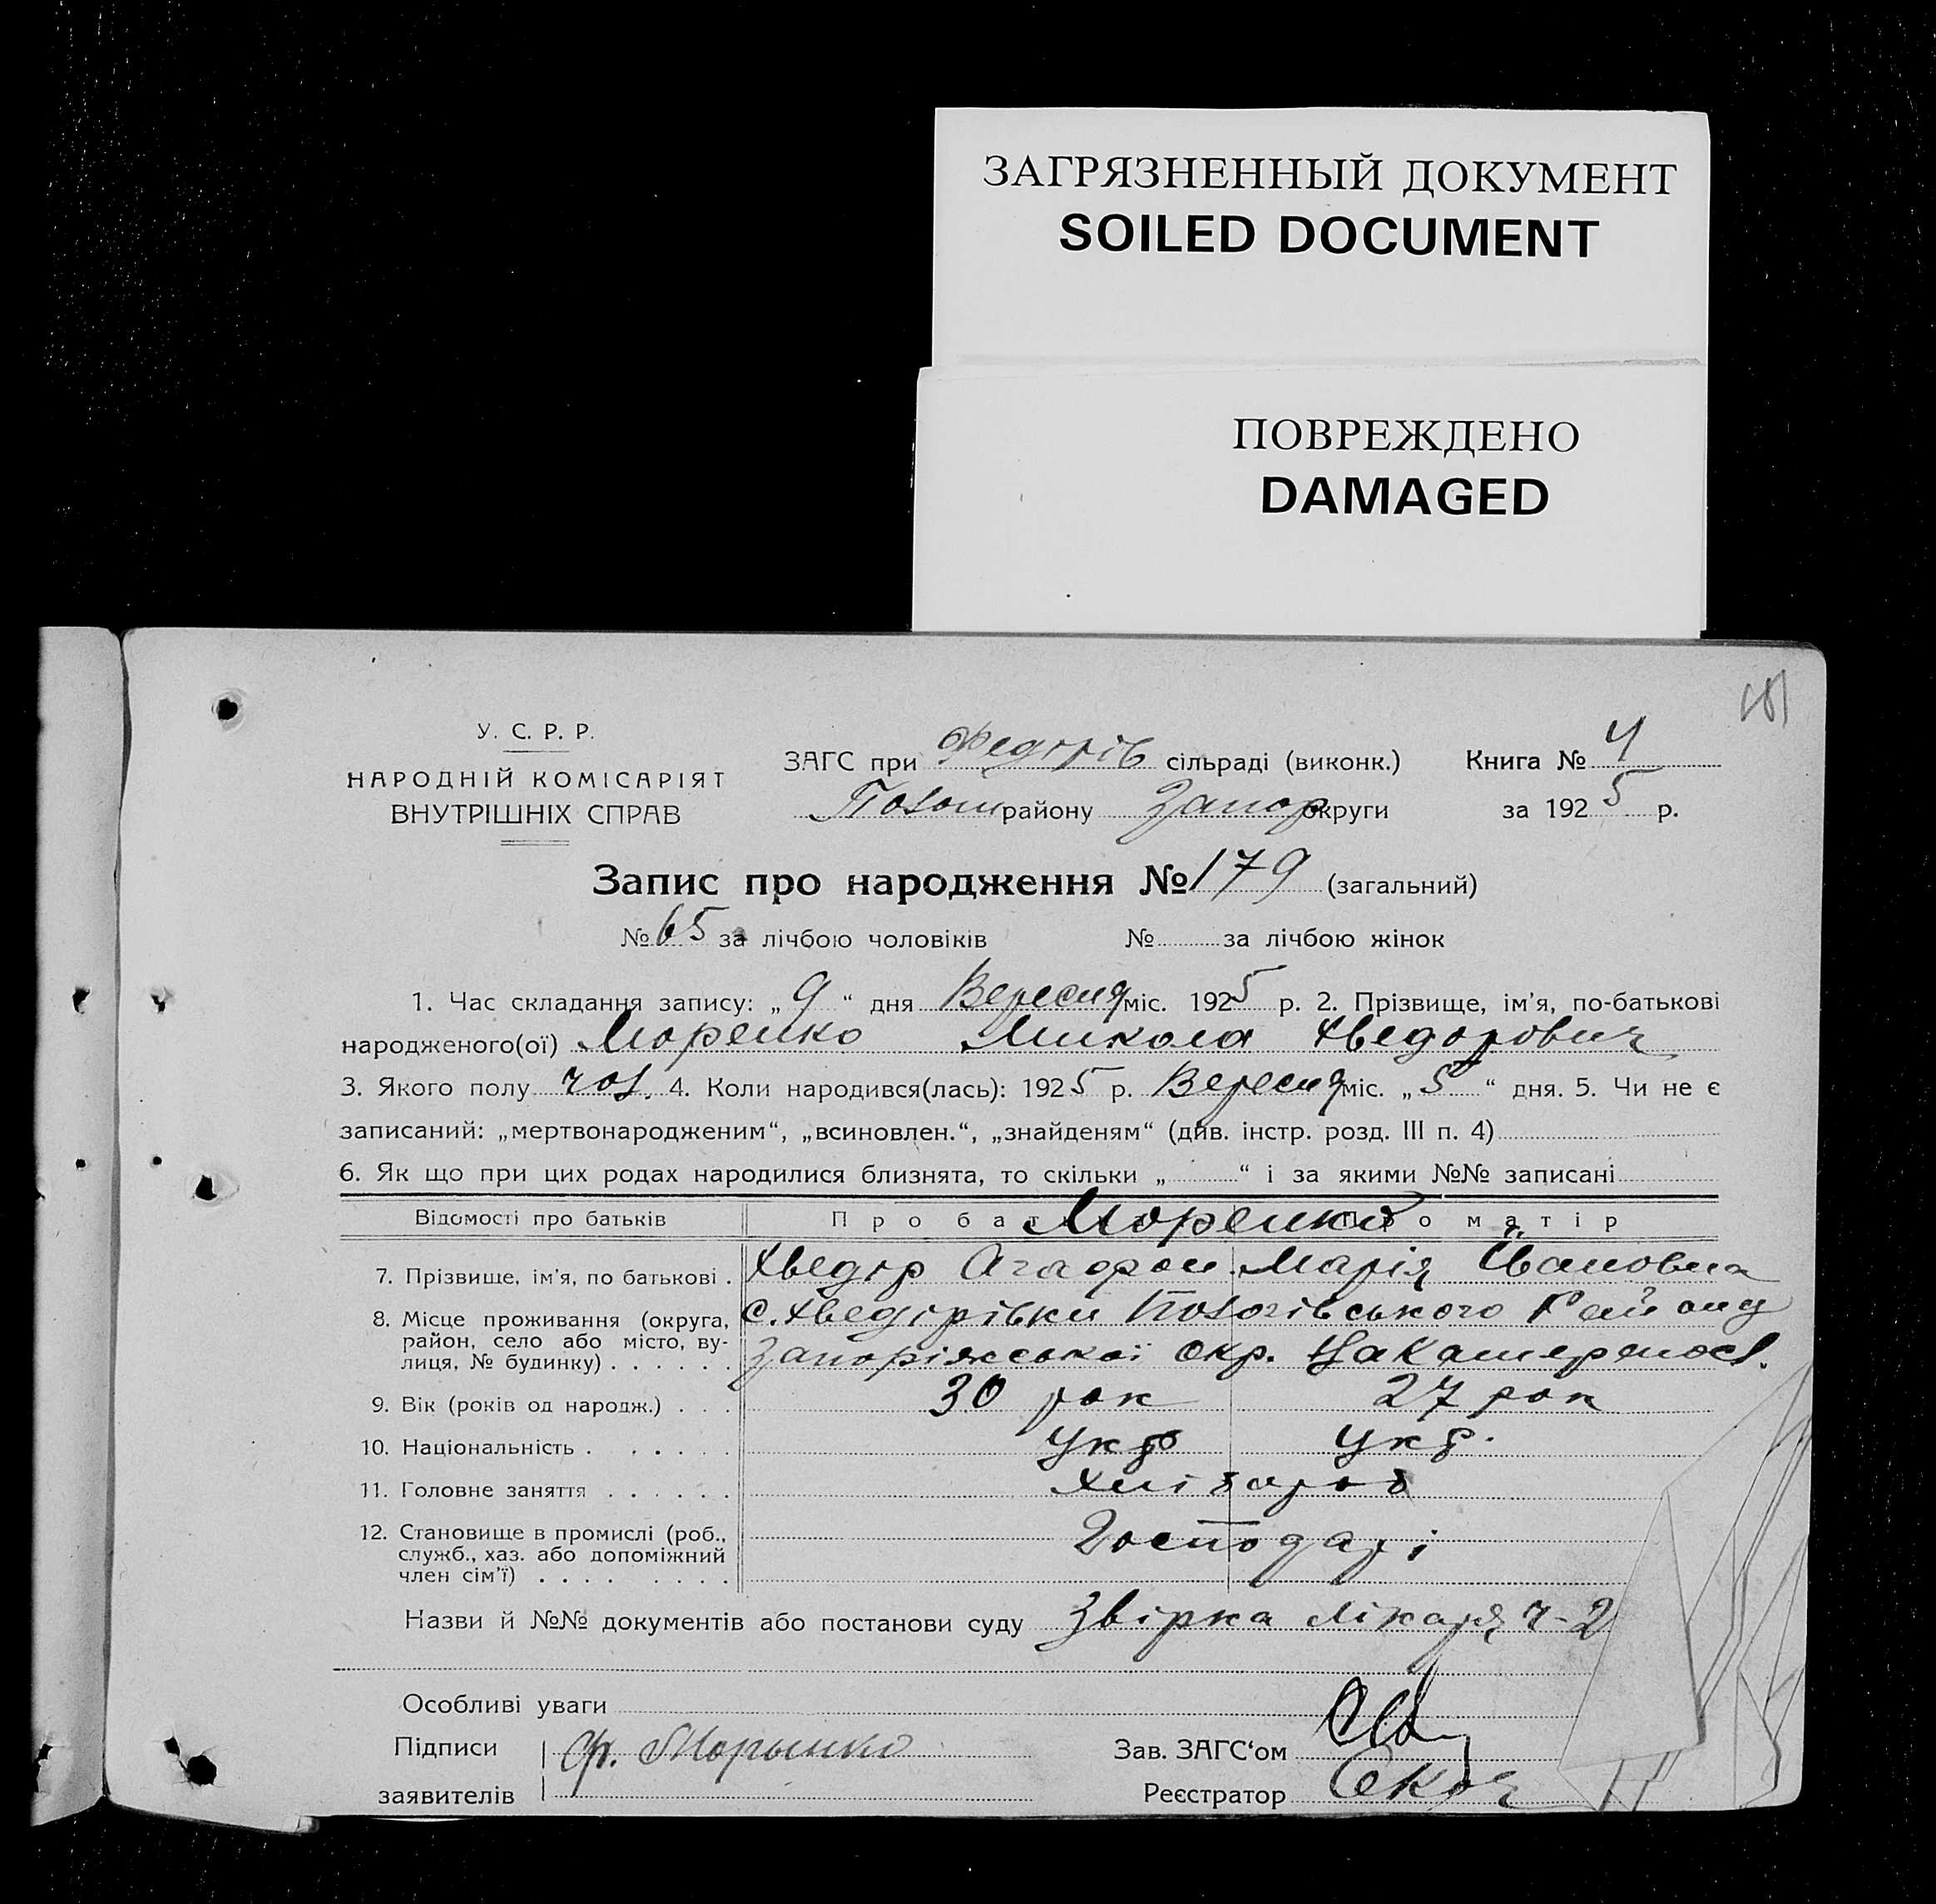 ЗАГРЯЗНЕННЫЙ ДОКУМЕНТ
SOILED DOCUMENT
ПОВРЕЖДЕНО
DAMAGED
У. С. Р. Р.
НАРОДНІЙ КОМІСАРІЯТ
ВНУТРІШНІХ СПРАВ
ЗАГС при Федорів сільраді (виконк.) Книга № 4
району Запор округи за 1925 р.
Запис про народження № 179 (загальний)
№ 65 за лічбою чоловіків № за лічбою жінок
1. Час складання запису: „9“ дня Вересня міс. 1925 р. 2. Прізвище, ім'я, по-батькові
народженого(ої) Моренко Микола Хведорович
3. Якого полу чол. 4. Коли народився(лась): 1925 р. Вересня міс. „5“ дня. 5. Чи не є
записаний: „мертвонародженим“, „всиновлен.“, „знайденям“ (див. інстр. розд. III п. 4)
6. Як що при цих родах народилися близнята, то скільки „ “ і за якими №№ записані
Відомості про батьків Про бат Моренки Про матір
7. Прізвище, ім'я, по батькові . Хведір Агафон. Марія Івановна
8. Місце проживання (округа, с. Хведірівки Пологівського Району
район, село або місто, ву-
лиця, № будинку) . . . . . . Запоріжської окр.
9. Вік (років од народж.) . . . 30 рок 27 рок
10. Національність . . . . . . Укр Укр.
11. Головне заняття . . . . . . Хлібароб
12. Становище в промислі (роб., Господарі
служб., хаз. або допоміжний
член сім'ї) . . . . . . . .
Назви й №№ документів або постанови суду Звірка лікаря ч-2
Особливі уваги
Підписи Ф. Морынко Зав. ЗАГС'ом
заявителів Реєстратор